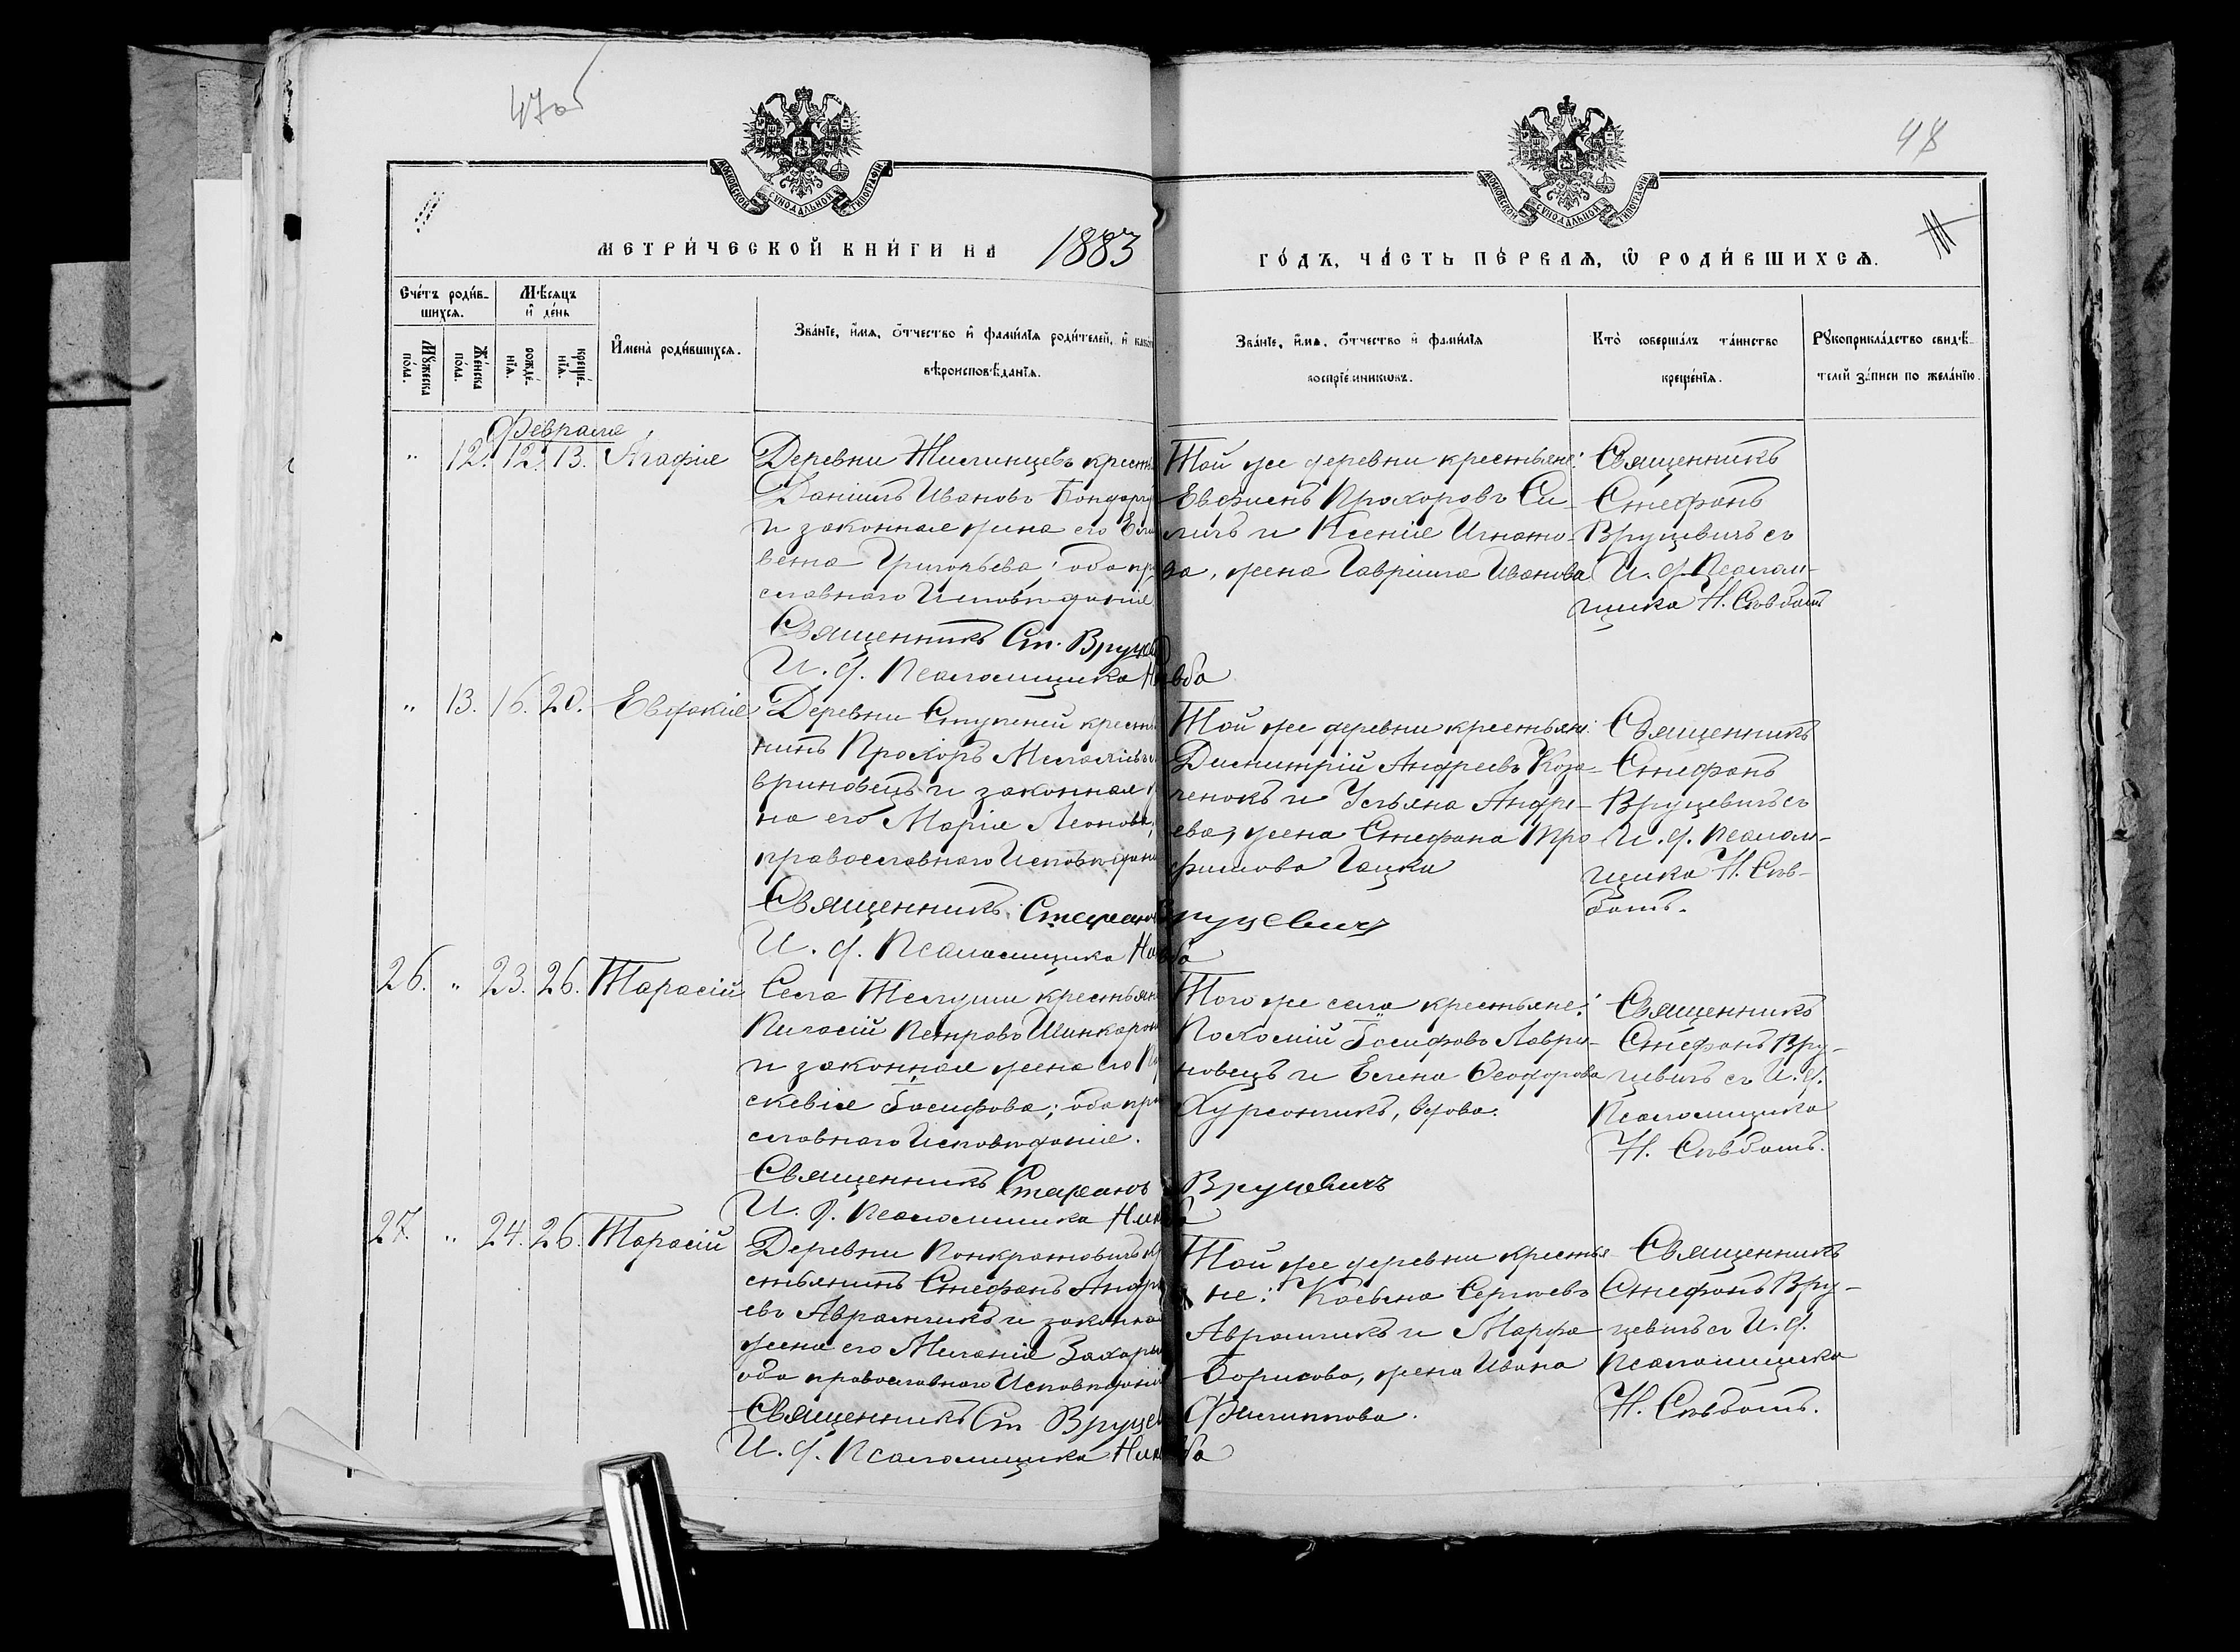 47об
48
МОСКОВСКОЙ СѴНОДАЛЬНОЙ ТИПОГРАФІИ
МОСКОВСКОЙ СѴНОДАЛЬНОЙ ТИПОГРАФІИ
МЕТРИ́ЧЕСКОЙ КНИ́ГИ НА 1883
ГО́ДЪ, ЧА́СТЬ ПЕ́РВАЯ, Ѡ РОДИ́ВШИХСЯ.
Сче́тъ роди́в-
шихся.
Мѣ́сяцъ
и де́нь
Му́жеска по́ла.
Же́нска по́ла.
рожде́-
нія.
креще́-
нія.
И҆мена̀ роди́вшихся.
Зва́ніе, и҆́мя, о҆́тчество и҆ фами́лія роди́телей, и҆ како
вѣроисповѣ́данія.
Зва́ніе, и҆́мя, о҆́тчество и҆ фами́лія
воспріе́мниковъ.
Кто̀ соверша́лъ та́инство
креще́нія.
Рꙋкоприкла́дство свидѣ́-
телей за́писи по жела́нію.
Февраля
" 12. 12. 13. Агафія
Деревни крест
Даніилъ Ивановъ Бондар
и законная жена его Ели
вета Григорьева; оба пр
славнаго Исповѣданія
Священникъ Ст. Вруце
И. д. Псаломщика Н
Той же деревни крестьяне:
Прохоровъ Си-
и Ксенія Игнато-
ва, жена Гавріила Иванова
Священникъ
Стефанъ
Вруцевичъ съ
И. д. Псалом-
щика Н.
" 13. 16. 20. Евдокія
Деревни Ступеней кресть
нинъ Прохоръ
вриновецъ и законная ж
на его Марія Леонова,
православнаго Исповѣдан
Священникъ Стефанъ Вруцевичъ
И. д. Псаломщика
Той же деревни крестьян:
Димитрій Андреевъ Коза-
ченокъ и Ульяна Андре-
ева, жена Стефана Тро
фимова Гацка
Священникъ
Стефанъ
Вруцевичъ съ
И. д. Псалом-
щика Н.
26. " 23. 26. Тарасій
Села Телуши крестьян
Петровъ
и законная жена его Па
скевія Іосифова; оба пра
славнаго Исповѣданія.
Священникъ Стефанъ Вруцевичъ
И. д. Псаломщика
Того же села крестьяне:
Пахомій Іосифовъ Лаври-
новецъ и Елена Феодорова
вдова.
Священникъ
Стефанъ Вру-
цевичъ съ И. д.
Псаломщика
Н.
27. " 24. 26. Тарасій
Деревни Панкратовичъ кр
стьянинъ Стефанъ Андре
евъ Авраменко и законна
жена его Меланія Захарь
оба православнаго Исповѣдані
Священникъ Ст Вруце
И. д. Псаломщика
Той же деревни крестья
не: Касьянъ Сергѣевъ
и Марфа
Борисова, жена Ивана
Филиппова.
Священникъ
Стефанъ Вру-
цевичъ съ И. д.
Псаломщика
Н.